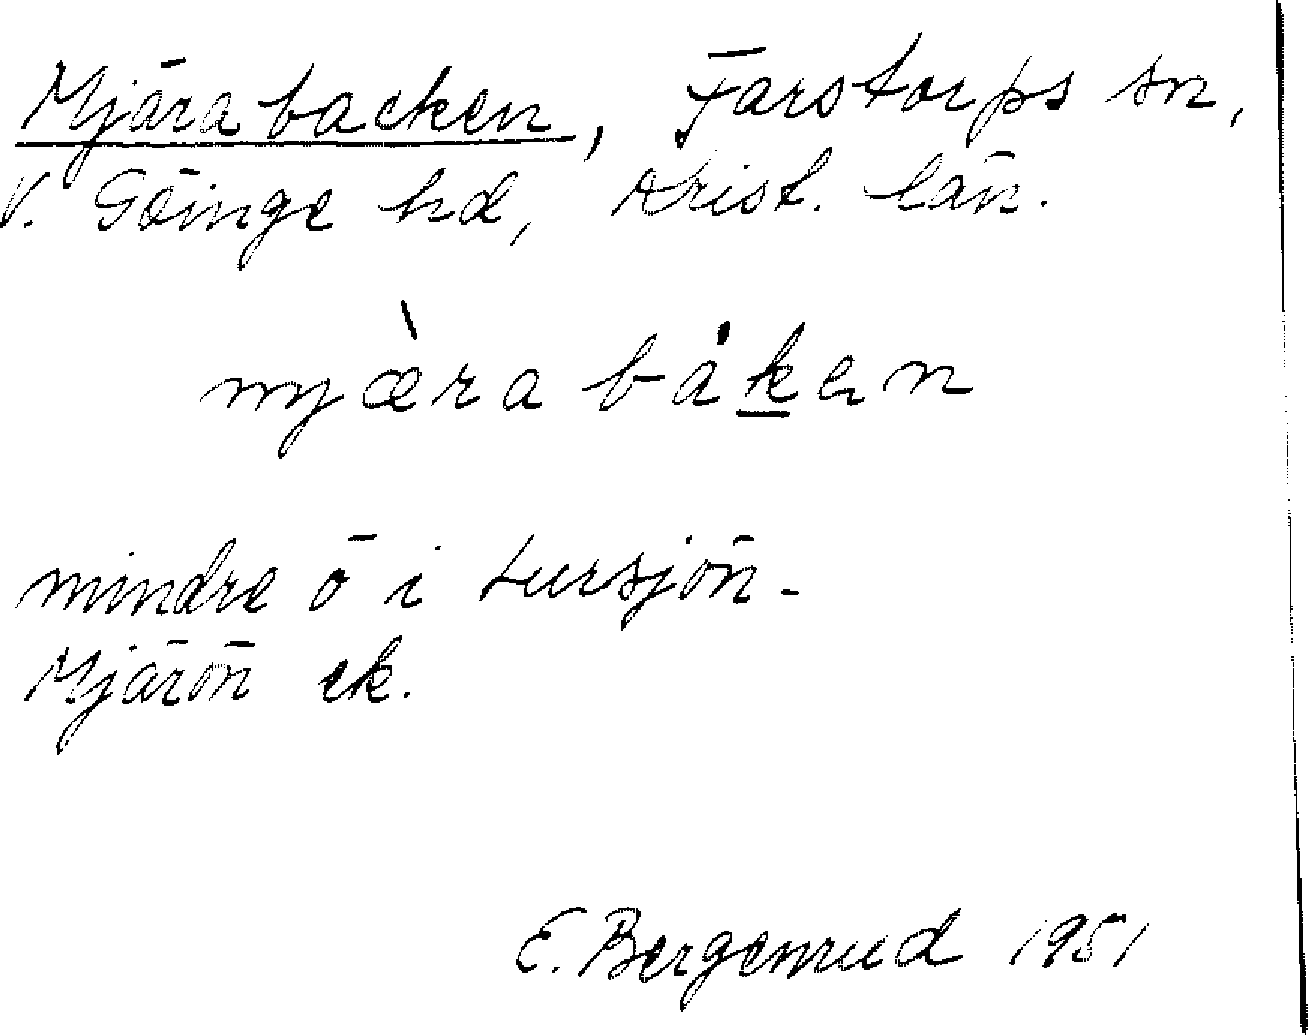 Mjärabacken, Farstorps sn,
V. Göinge hd, Krist. län.
mjæ̀ra båkən
mindre ö i Lursjön.
Mjärön ek.
E. Bergenrud 1951